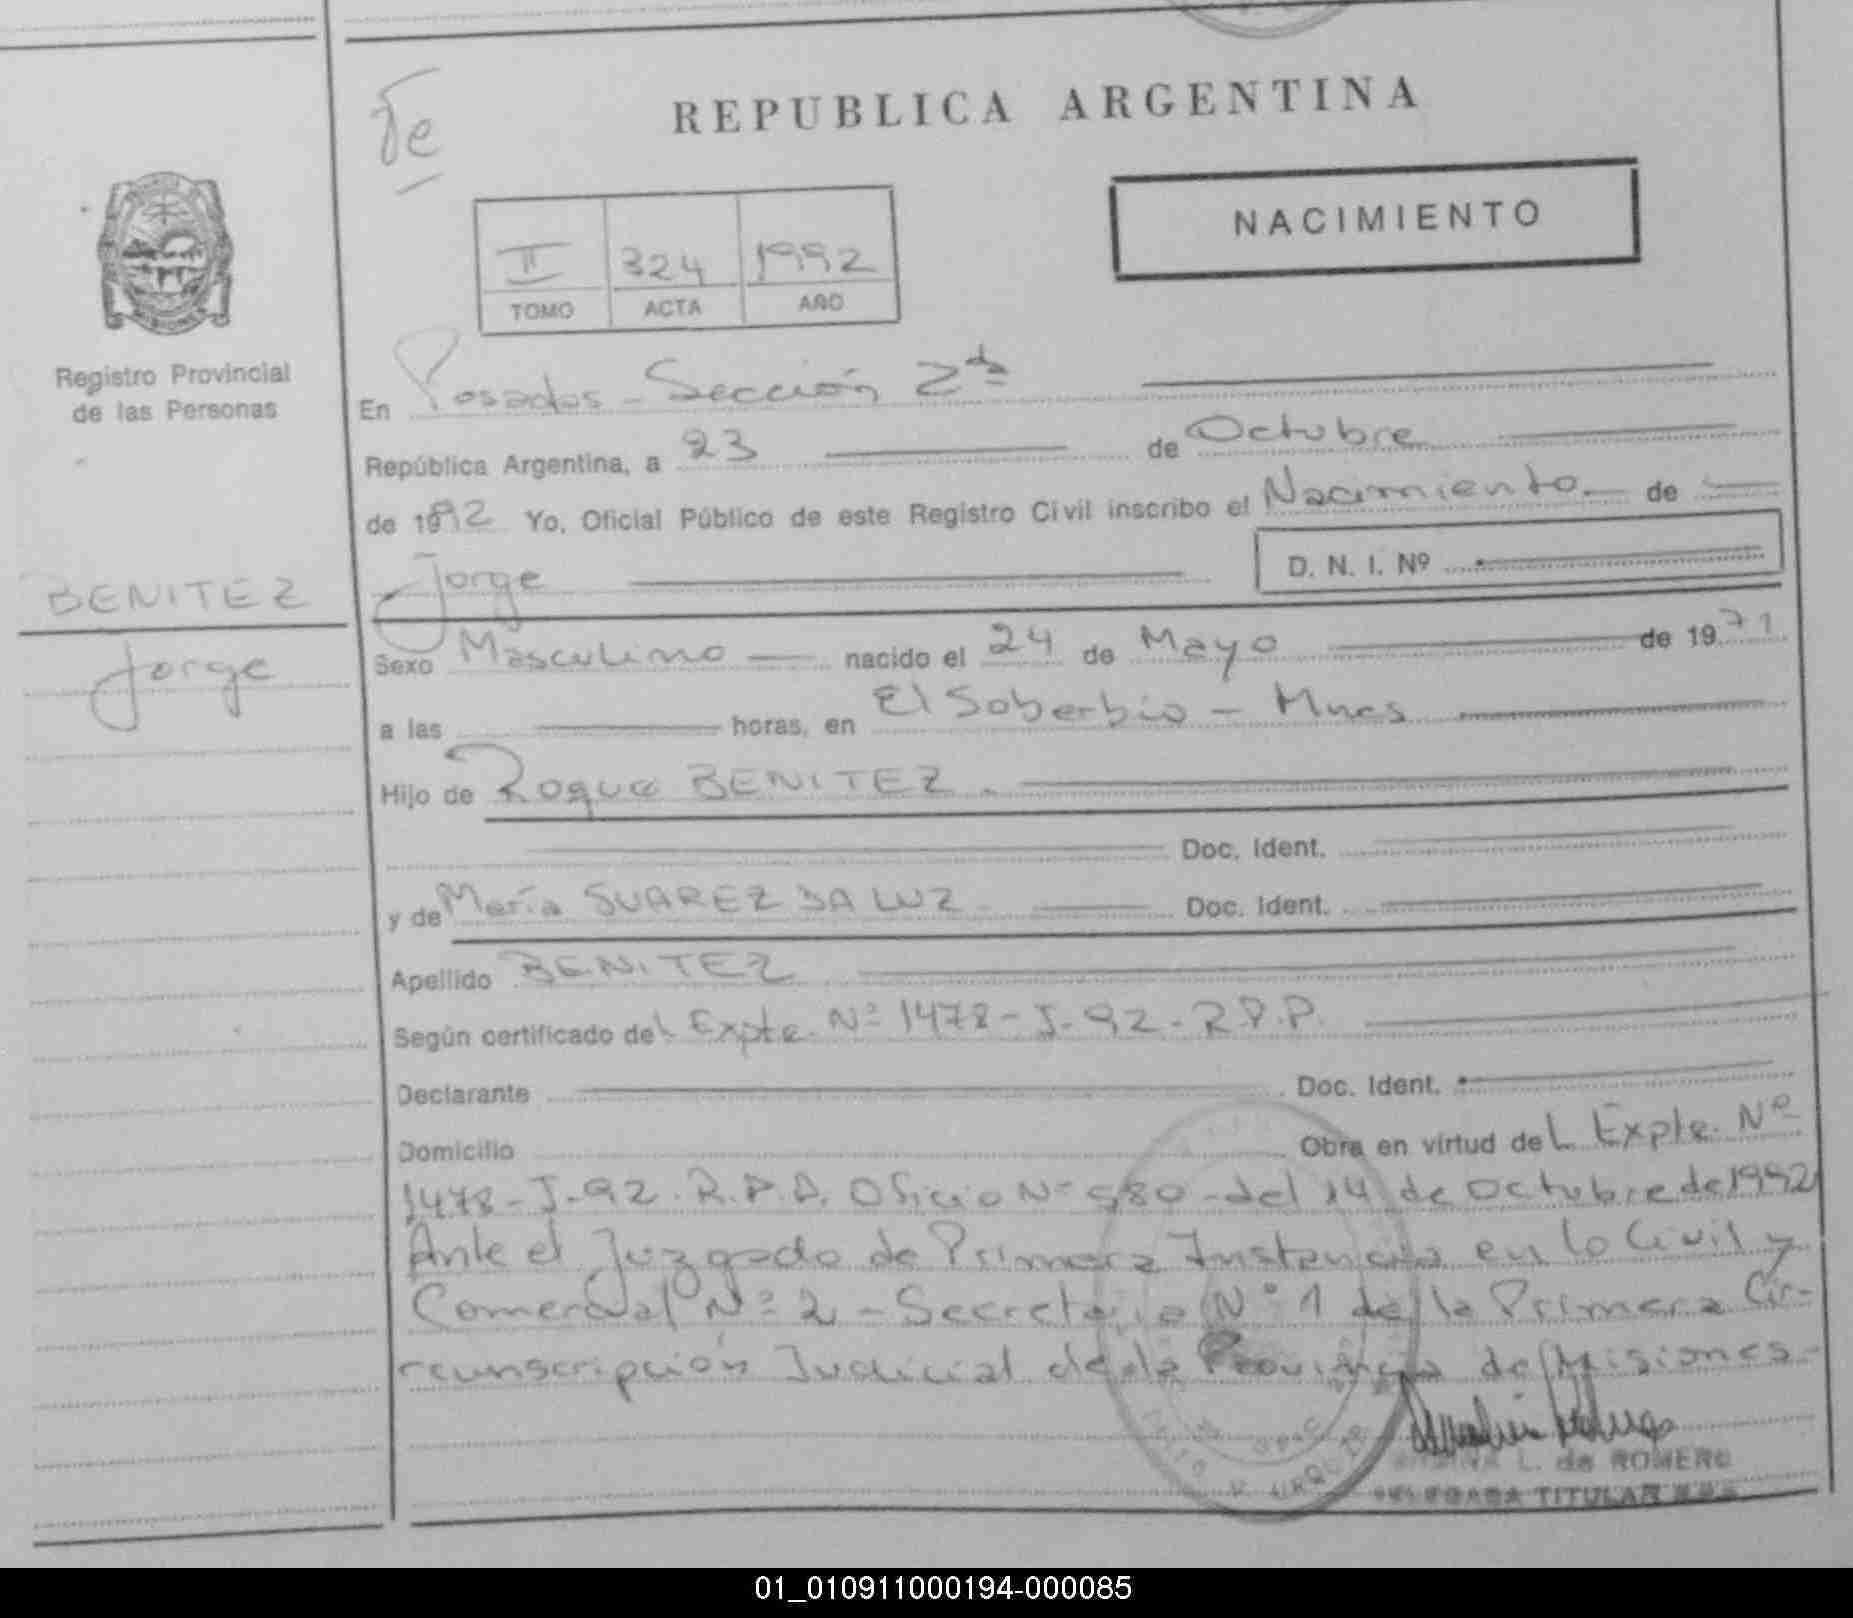 REPUBLICA ARGENTINA
NACIMIENTO
II 324 1992
TOMO ACTA AÑO
MISIONES
Registro Provincial
de las Personas
BENITEZ
Jorge
En Posadas - Sección 2da
República Argentina, a 23 de Octubre
de 1992 Yo, Oficial Público de este Registro Civil inscribo el Nacimiento de
Jorge D. N. I. Nº
Sexo Masculino nacido el 24 de Mayo de 1971
a las horas, en El Soberbio - Mnes
Hijo de Roque BENITEZ.
Doc. Ident.
y de María SUAREZ DA LUZ Doc. Ident.
Apellido BENITEZ
Según certificado del Expte. Nº 1478-J-92-R.P.P.
Declarante Doc. Ident.
Domicilio Obra en virtud del Expte. Nº
1478-J-92. R.P.P. Oficio Nº 980 - del 14 de Octubre de 1992
Ante el Juzgado de Primera Instancia en lo Civil y
Comercial Nº 2 - Secretaria Nº 1 de la Primera Cir-
cunscripción Judicial de la Provincia de Misiones-
L. de ROMERO
DELEGADA TITULAR
01_010911000194-000085